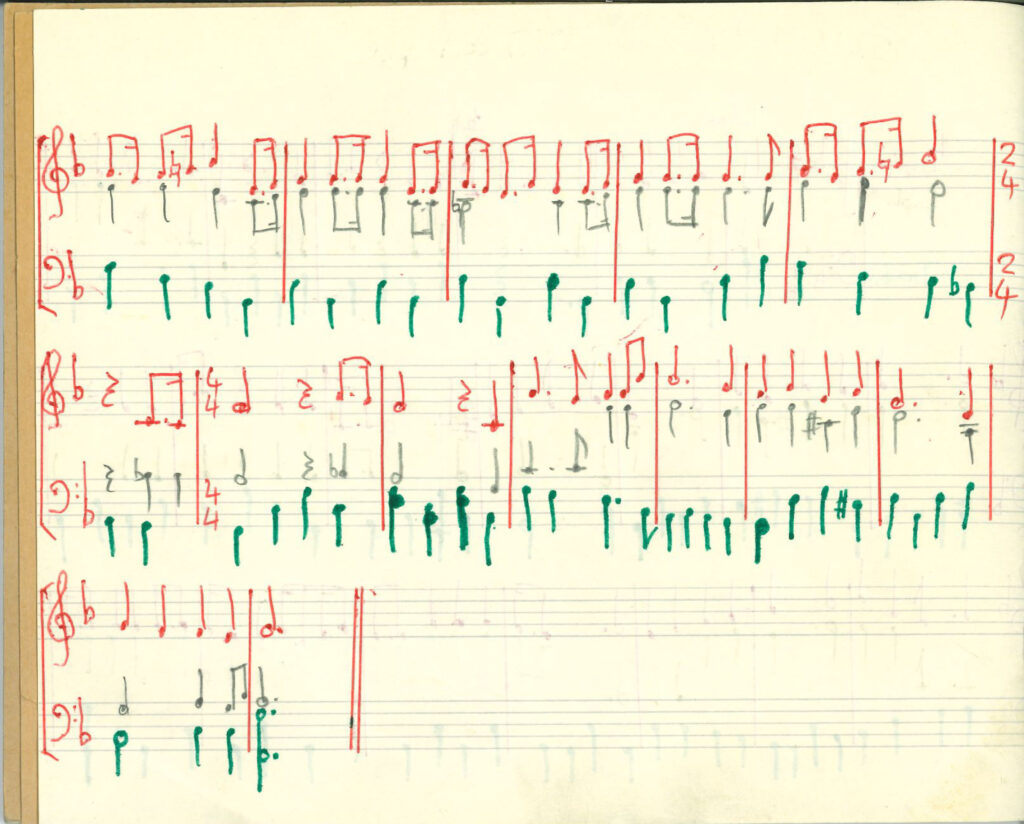 2
4
2
4
4
4
4
4